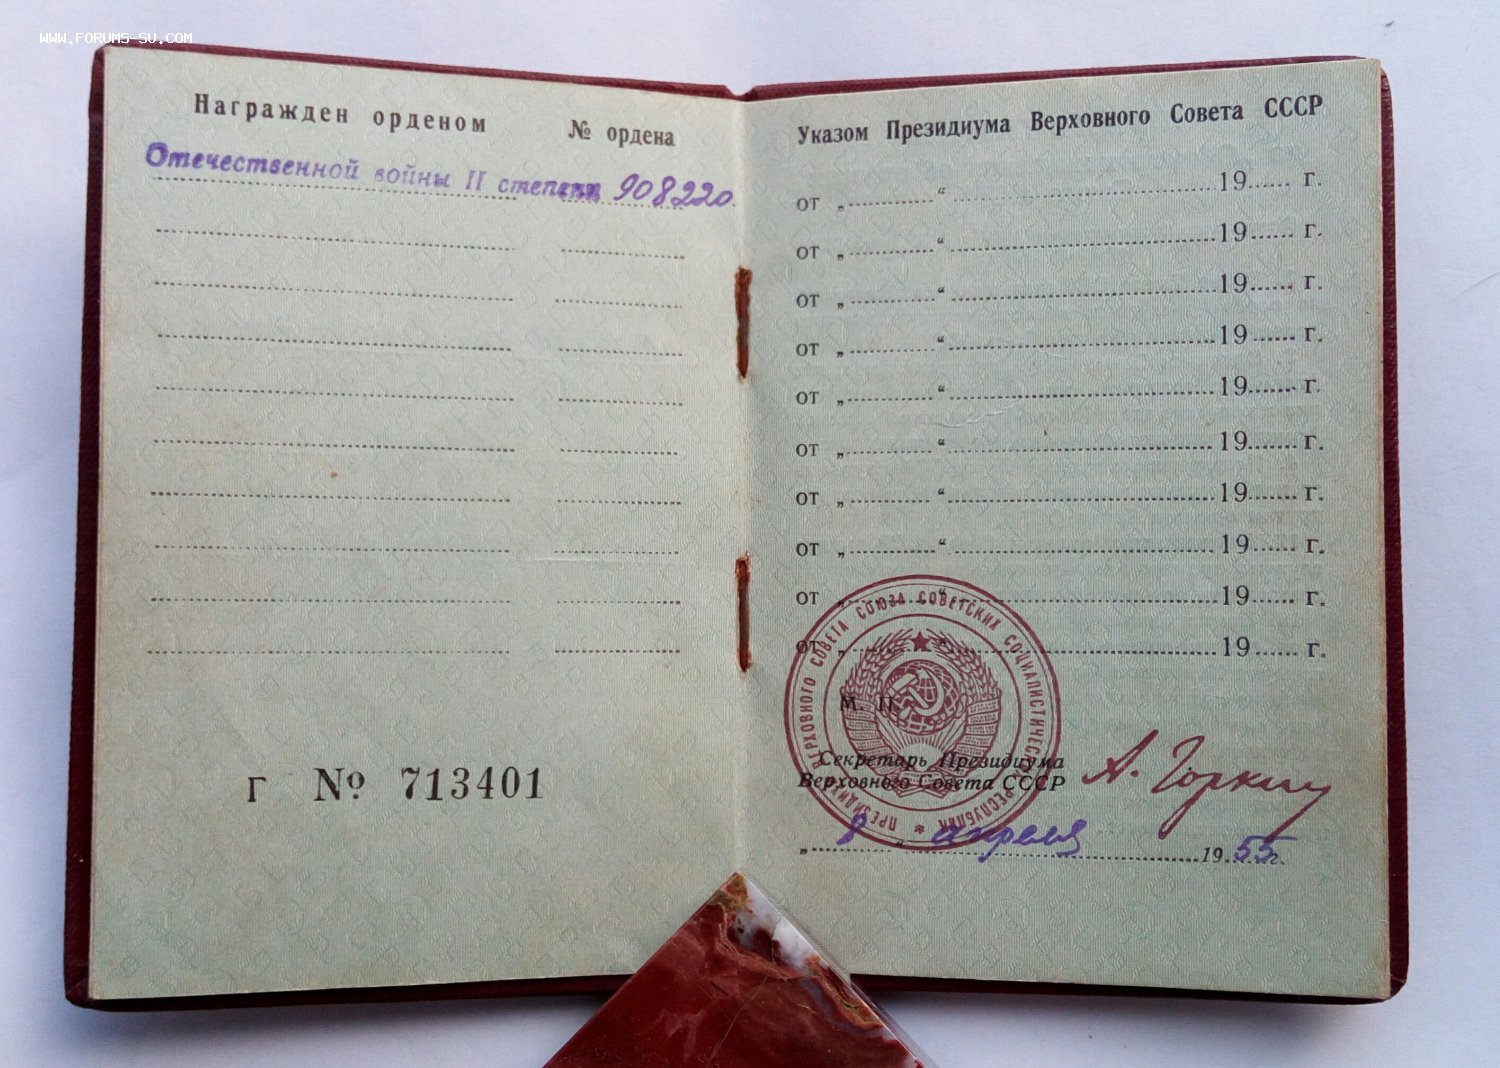 WWW.FORUMS-SU.COM
Награжден орденом № ордена
Отечественной войны II степени 908220
Г № 713401
Указом Президиума Верховного Совета СССР
от „ “ 19 г.
от „ “ 19 г.
от „ “ 19 г.
от „ “ 19 г.
от „ “ 19 г.
от „ “ 19 г.
от „ “ 19 г.
от „ “ 19 г.
от „ “ 19 г.
от „ “ 19 г.
ПРЕЗИДИУМ ВЕРХОВНОГО СОВЕТА СОЮЗА СОВЕТСКИХ СОЦИАЛИСТИЧЕСКИХ РЕСПУБЛИК
М. П.
Секретарь Президиума
Верховного Совета СССР А. Горкин
„ 8 “ апреля 1955 г.